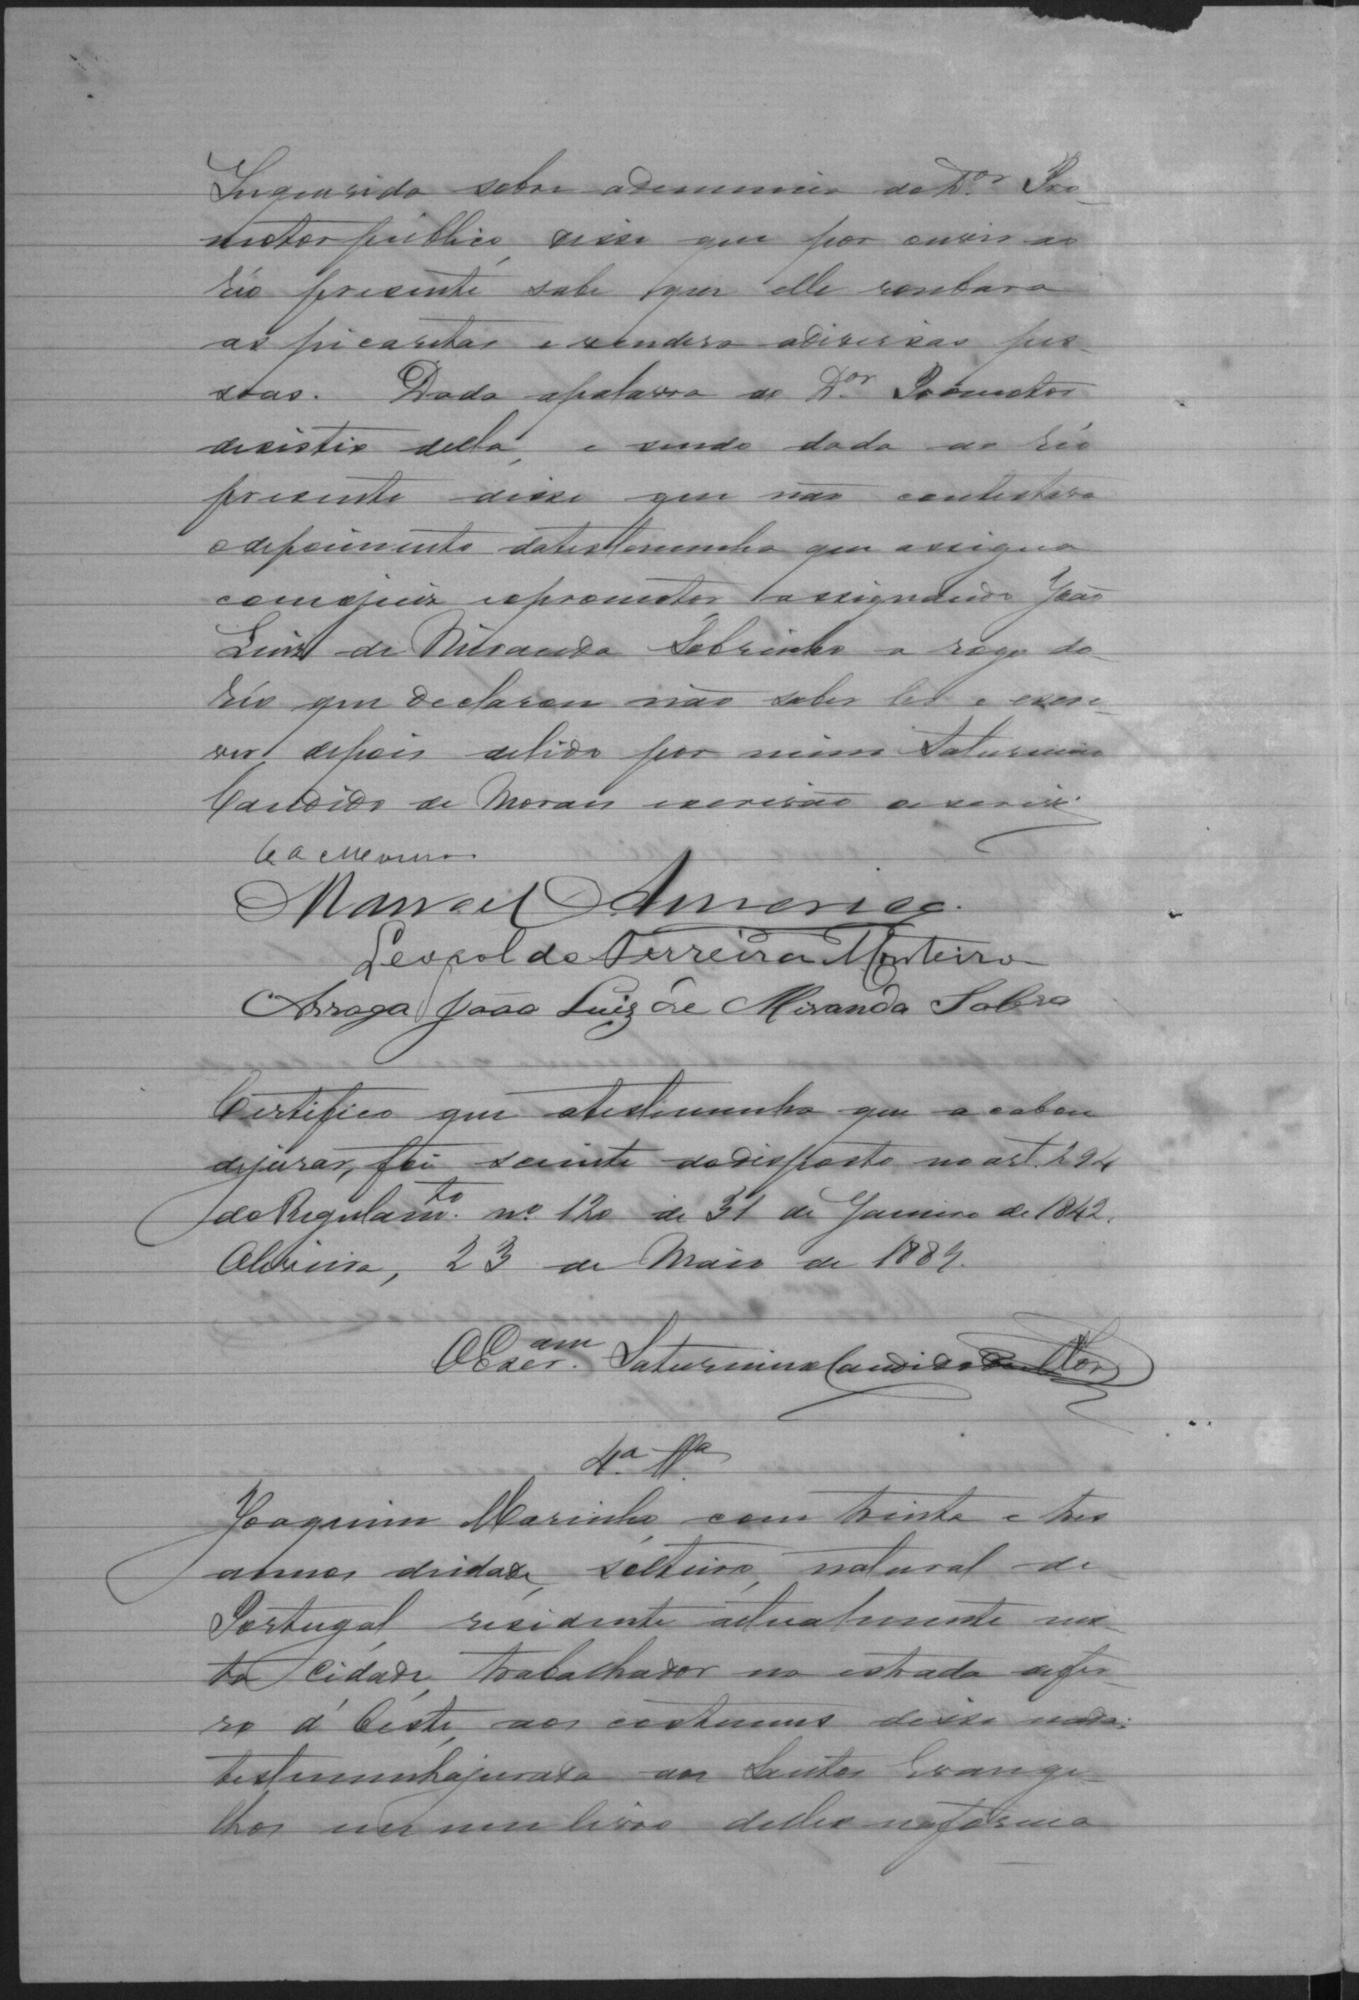 Inquirido sobre a denuncia do Dor. Pro-
motor publico, disse que por ouvir ao
réo presente sabe que elle roubara
as picaretas e vendera a diversas pes-
soas. Dada a palavra ao Dor. Promotor
desistio della, e sendo dada ao réo
presente disse que não contestava
o depoimento da testemunha que assigna
com o juiz e o promotor assignando João
Luiz de Miranda Sobrinho a rogo do
réo que declarou não saber ler e escre-
ver, depois de lido por mim Saturnino
Candido de Moraes escrivão o escrevi.
Manoel Americo.
Leopoldo Ferreira Monteiro
Arrogo João Luiz de Miranda Sobro
Certifico que a testemunha que acabou
de jurar, foi sciente do disposto no art. 294
do Regulamto. no. 120 de 31 de Janeiro de 1842.
Oliveira, 23 de Maio de 1889.
O Escram. Saturnino Candido de Mor
4a. Ta.
Joaquim Marinho, com trinta e tres
annos de idade, solteiro, natural de
Portugal, residente actualmente nes-
ta Cidade, trabalhador na estrada de fer-
ro d'Oeste, aos costumes disse nada;
testemunha jurada aos Santos Evange-
lhos em um livro delles na forma